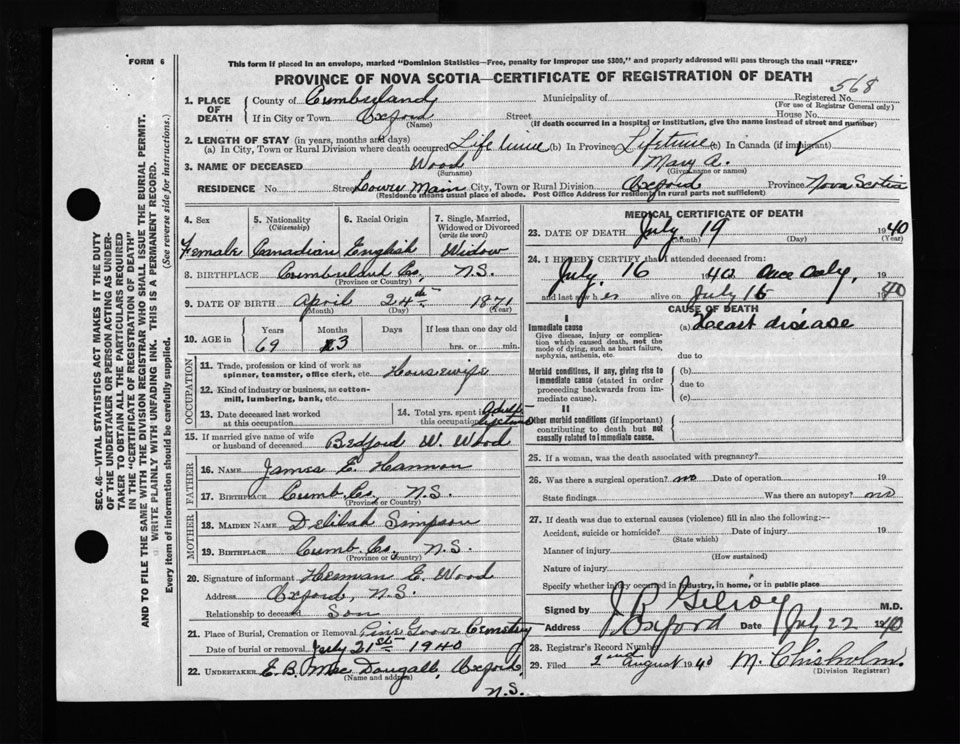 FORM 6
This form if placed in an envelope, marked "Dominion Statistics—Free, penalty for improper use $300," and properly addressed will pass through the mail "FREE"
PROVINCE OF NOVA SCOTIA—CERTIFICATE OF REGISTRATION OF DEATH
568
SEC. 46—VITAL STATISTICS ACT MAKES IT THE DUTY
OF THE UNDERTAKER OR PERSON ACTING AS UNDER-
TAKER TO OBTAIN ALL THE PARTICULARS REQUIRED
IN THE "CERTIFICATE OF REGISTRATION OF DEATH"
AND TO FILE THE SAME WITH THE DIVISION REGISTRAR WHO SHALL ISSUE THE BURIAL PERMIT.
WRITE PLAINLY WITH UNFADING INK. THIS IS A PERMANENT RECORD.
Every item of information should be carefully supplied. (See reverse side for instructions.)
1. PLACE OF DEATH
County of Cumberland Municipality of Registered No.
(For use of Registrar General only)
If in City or Town Oxford Street House No.
(Name) (If death occurred in a hospital or institution, give the name instead of street and number)
2. LENGTH OF STAY (in years, months and days)
(a) In City, Town or Rural Division where death occurred Life time (b) In Province Lifetime (c) In Canada (if immigrant)
3. NAME OF DECEASED Wood Mary A.
(Surname) (Given name or names)
RESIDENCE No Street Lower Main City, Town or Rural Division Oxford Province Nova Scotia
(Residence means usual place of abode. Post Office Address for Residents in rural parts not sufficient)
4. Sex 5. Nationality 6. Racial Origin 7. Single, Married,
(Citizenship) Widowed or Divorced
(write the word)
Female Canadian English Widow
8. BIRTHPLACE Cumberland Co. N.S.
(Province or Country)
9. DATE OF BIRTH April 24th 1871
(Month) (Day) (Year)
10. AGE in Years Months Days If less than one day old
69 3 hrs. or min.
OCCUPATION
11. Trade, profession or kind of work as
spinner, teamster, office clerk, etc. Housewife
12. Kind of industry or business, as cotton-
mill, lumbering, bank, etc.
13. Date deceased last worked
at this occupation
14. Total yrs. spent in
this occupation Adult lifetime
15. If married give name of wife
or husband of deceased Bedford W. Wood
FATHER
16. NAME James E. Hannon
17. BIRTHPLACE Cumb. Co. N.S.
(Province or Country)
MOTHER
18. MAIDEN NAME Delilah Simpson
19. BIRTHPLACE Cumb. Co. N.S.
(Province or Country)
20. Signature of informant Herman E. Wood
Address Oxford, N.S.
Relationship to deceased Son
21. Place of Burial, Cremation or Removal Pine Grove Cemetery
Date of burial or removal July 21st 1940
22. UNDERTAKER E. B. Mac Dougall, Oxford
(Name and address)
N.S.
MEDICAL CERTIFICATE OF DEATH
23. DATE OF DEATH July 19 1940
(Month) (Day) (Year)
24. I HEREBY CERTIFY that I attended deceased from:
July, 16 1940 once only, 19
and last saw her alive on July 16 1940
CAUSE OF DEATH
I
Immediate cause (a) Heart disease
Give disease, injury or complica-
tion which caused death, not the
mode of dying, such as heart failure,
asphyxia, asthenia, etc. due to
Morbid conditions, if any, giving rise to (b)
immediate cause (stated in order due to
proceeding backwards from im-
mediate cause). (c)
II
Other morbid conditions (if important)
contributing to death but not
causally related to immediate cause.
25. If a woman, was the death associated with pregnancy?
26. Was there a surgical operation? no Date of operation 19
State findings Was there an autopsy? no
27. If death was due to external causes (violence) fill in also the following:—
Accident, suicide or homicide? Date of injury 19
(State which)
Manner of injury
(How sustained)
Nature of injury
Specify whether injury occurred in industry, in home, or in public place
Signed by J R Gilroy M.D.
Address Oxford Date July 22 1940
28. Registrar's Record Number
29. Filed 2nd August 1940 M. Chisholm.
(Division Registrar)